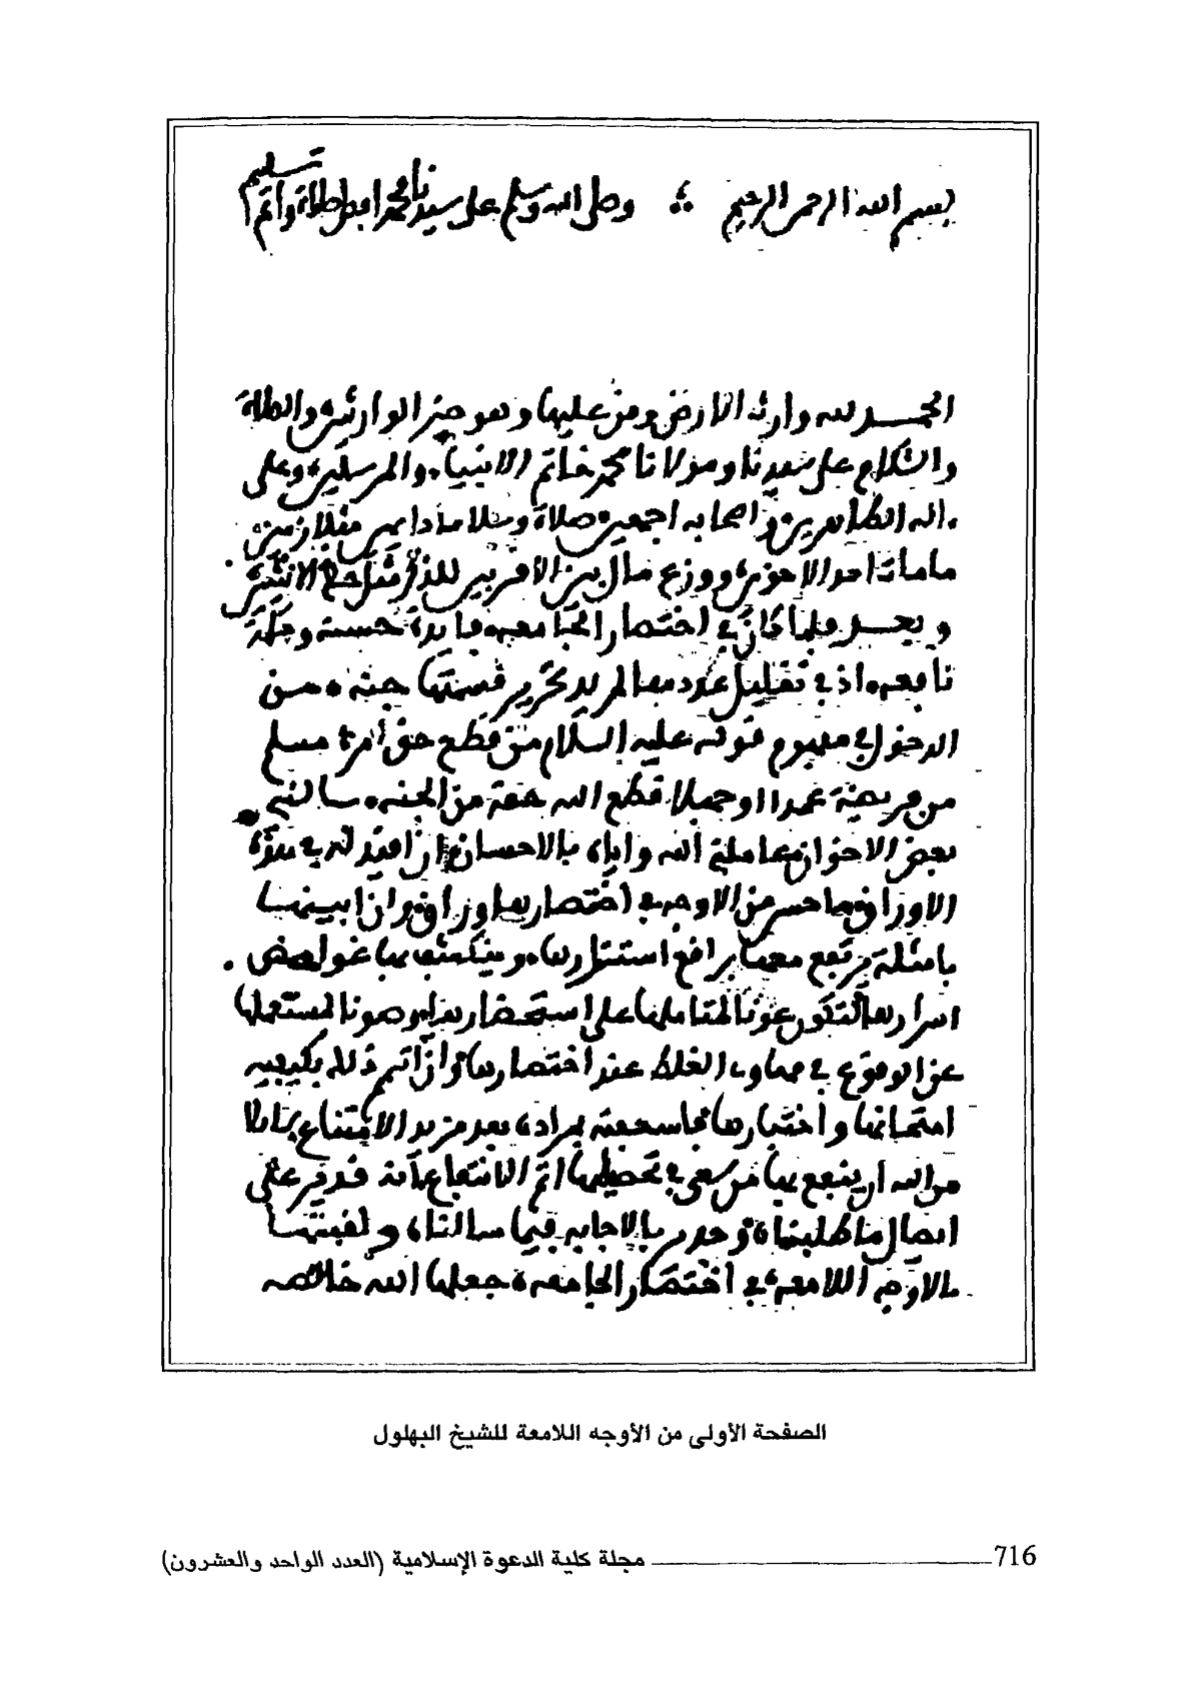 بسم الله الرحمن الرحيم ؞ وصلى الله وسلم على سيدنا محمد افضل صلاة واتم تسليم
الحمد لله وارث الارض ومن عليها وهو خير الوارثين والصلاة
والسلام على سيدنا ومولانا محمد خاتم الانبياء والمرسلين وعلى
اله الطاهرين واصحابه اجمعين صلاة وسلاما دايمين متلازمين
ما مات احد الاخوين ووزع مال بين الاقربين للذكر مثل حظ الانثيين
وبعد فلما كان في اختصار الجامعه فايدة حسنة وجملة
نافعه اذ في تقليل عددها لمريد تحرير قسمتها جنه من
الدخول في مفهوم قوله عليه السلام من قطع حق امرئ مسلم
من فريضة عمدا او جهلا قطع الله حقه من الجنه سالني
بعض الاخوان عاملني الله واياه بالاحسان ان اقيد له في هذه
الاوراق ما حسن من الاوجه في اختصارها وراق وان ابينها
بامثلة يرتفع معها براقع استتارها وينكشف بها غوامض
اسرارها لتكون عونا لمتاملها على استحضارها وصونا لمستعملها
عن الوقوع في مهاوي الغلط عند اختصارها وان اتم ذلك بكيفيه
امتحانها واختبارها فاسعفته بمراده بعد مزيد الامتناع سائلا
من الله ان ينفع بها من سعى في تحصيلها اتم الانتفاع انه قدير على
ايصال ما طلبناه وجدير بالاجابه فيما سالناه ولقبتها
بالاوجه اللامعه في اختصار الجامعه جعلها الله خالصه
الصفحة الأولى من الأوجه اللامعة للشيخ البهلول
716 مجلة كلية الدعوة الإسلامية (العدد الواحد والعشرون)